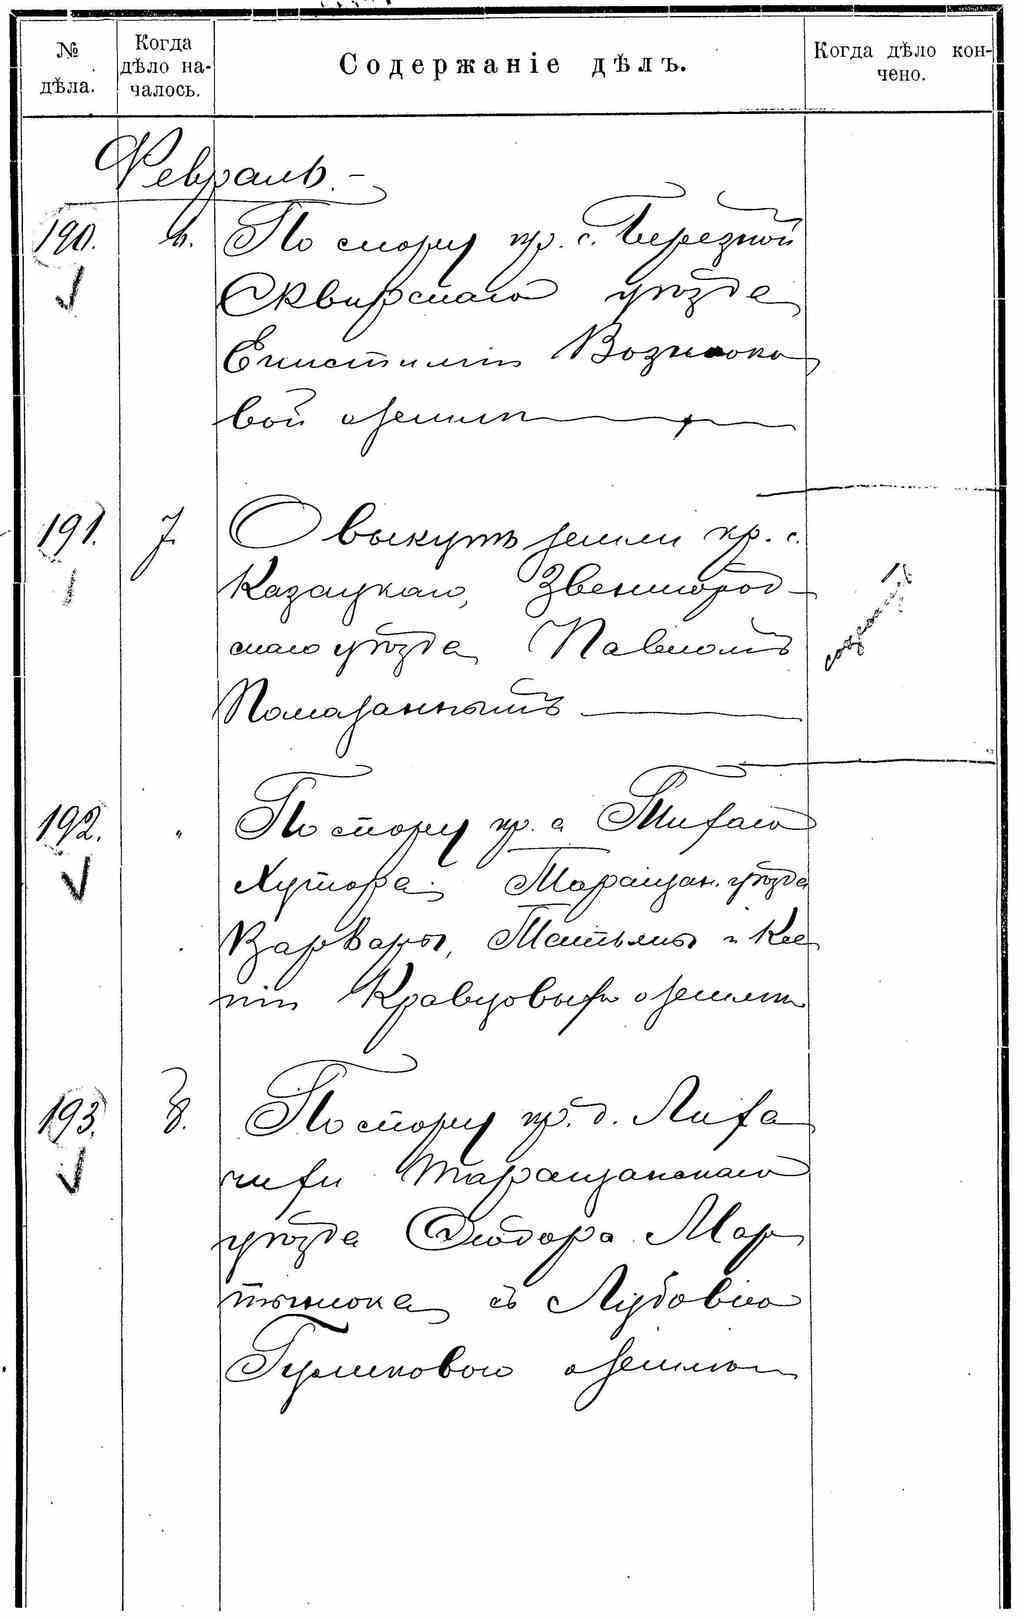 № дѣла.
Когда дѣло началось.
Содержаніе дѣлъ.
Когда дѣло кончено.
Февраль.
190.
6.
По спору кр. с. Березной
Сквирскаго уѣзда
Вознюко
вой о землѣ
191.
7.
О выкупѣ земли кр. с.
Казацкаго, Звенигород-
скаго уѣзда Павломъ
Помазаннымъ
192.
"
По спору кр. с. Тихаго
Хутора Таращан. уѣзда
Варвары, Татьяны и Ксе
ніи Кравцовыхъ о землѣ
193.
8.
По спору кр. д. Лиха
чихи Таращанскаго
уѣзда Ѳеодора Мар
тынюка съ Любовію
о землѣ